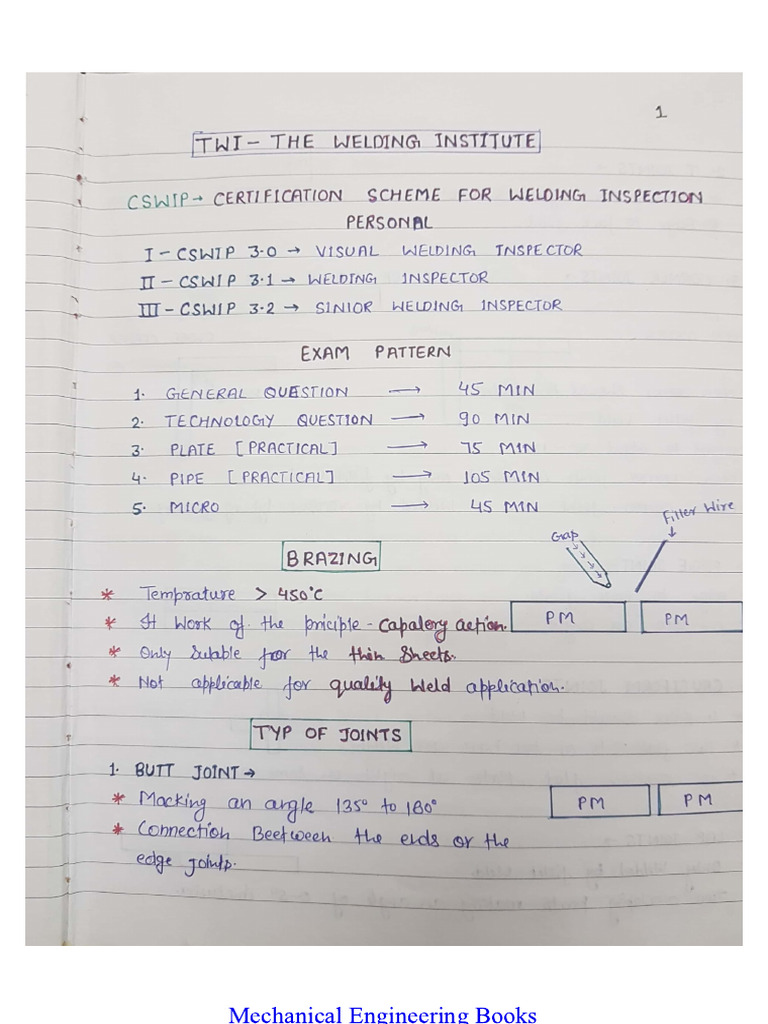 1
TWI - THE WELDING INSTITUTE
CSWIP → CERTIFICATION SCHEME FOR WELDING INSPECTION
PERSONAL
I - CSWIP 3.0 → VISUAL WELDING INSPECTOR
II - CSWIP 3.1 → WELDING INSPECTOR
III - CSWIP 3.2 → SINIOR WELDING INSPECTOR
EXAM PATTERN
1. GENERAL QUESTION → 45 MIN
2. TECHNOLOGY QUESTION → 90 MIN
3. PLATE [PRACTICAL] → 75 MIN
4. PIPE [PRACTICAL] → 105 MIN
5. MICRO → 45 MIN
Filler Wire
Gap
BRAZING
* Temprature > 450°C
* It Work of the priciple - Capalery action.
PM PM
* Only Sutable froor the thin Sheets.
* Not applicable for quality Weld application.
TYP OF JOINTS
1. BUTT JOINT →
* Macking an angle 135° to 180°
PM PM
* Connection Beetween the ends or the
edge joints.
Mechanical Engineering Books